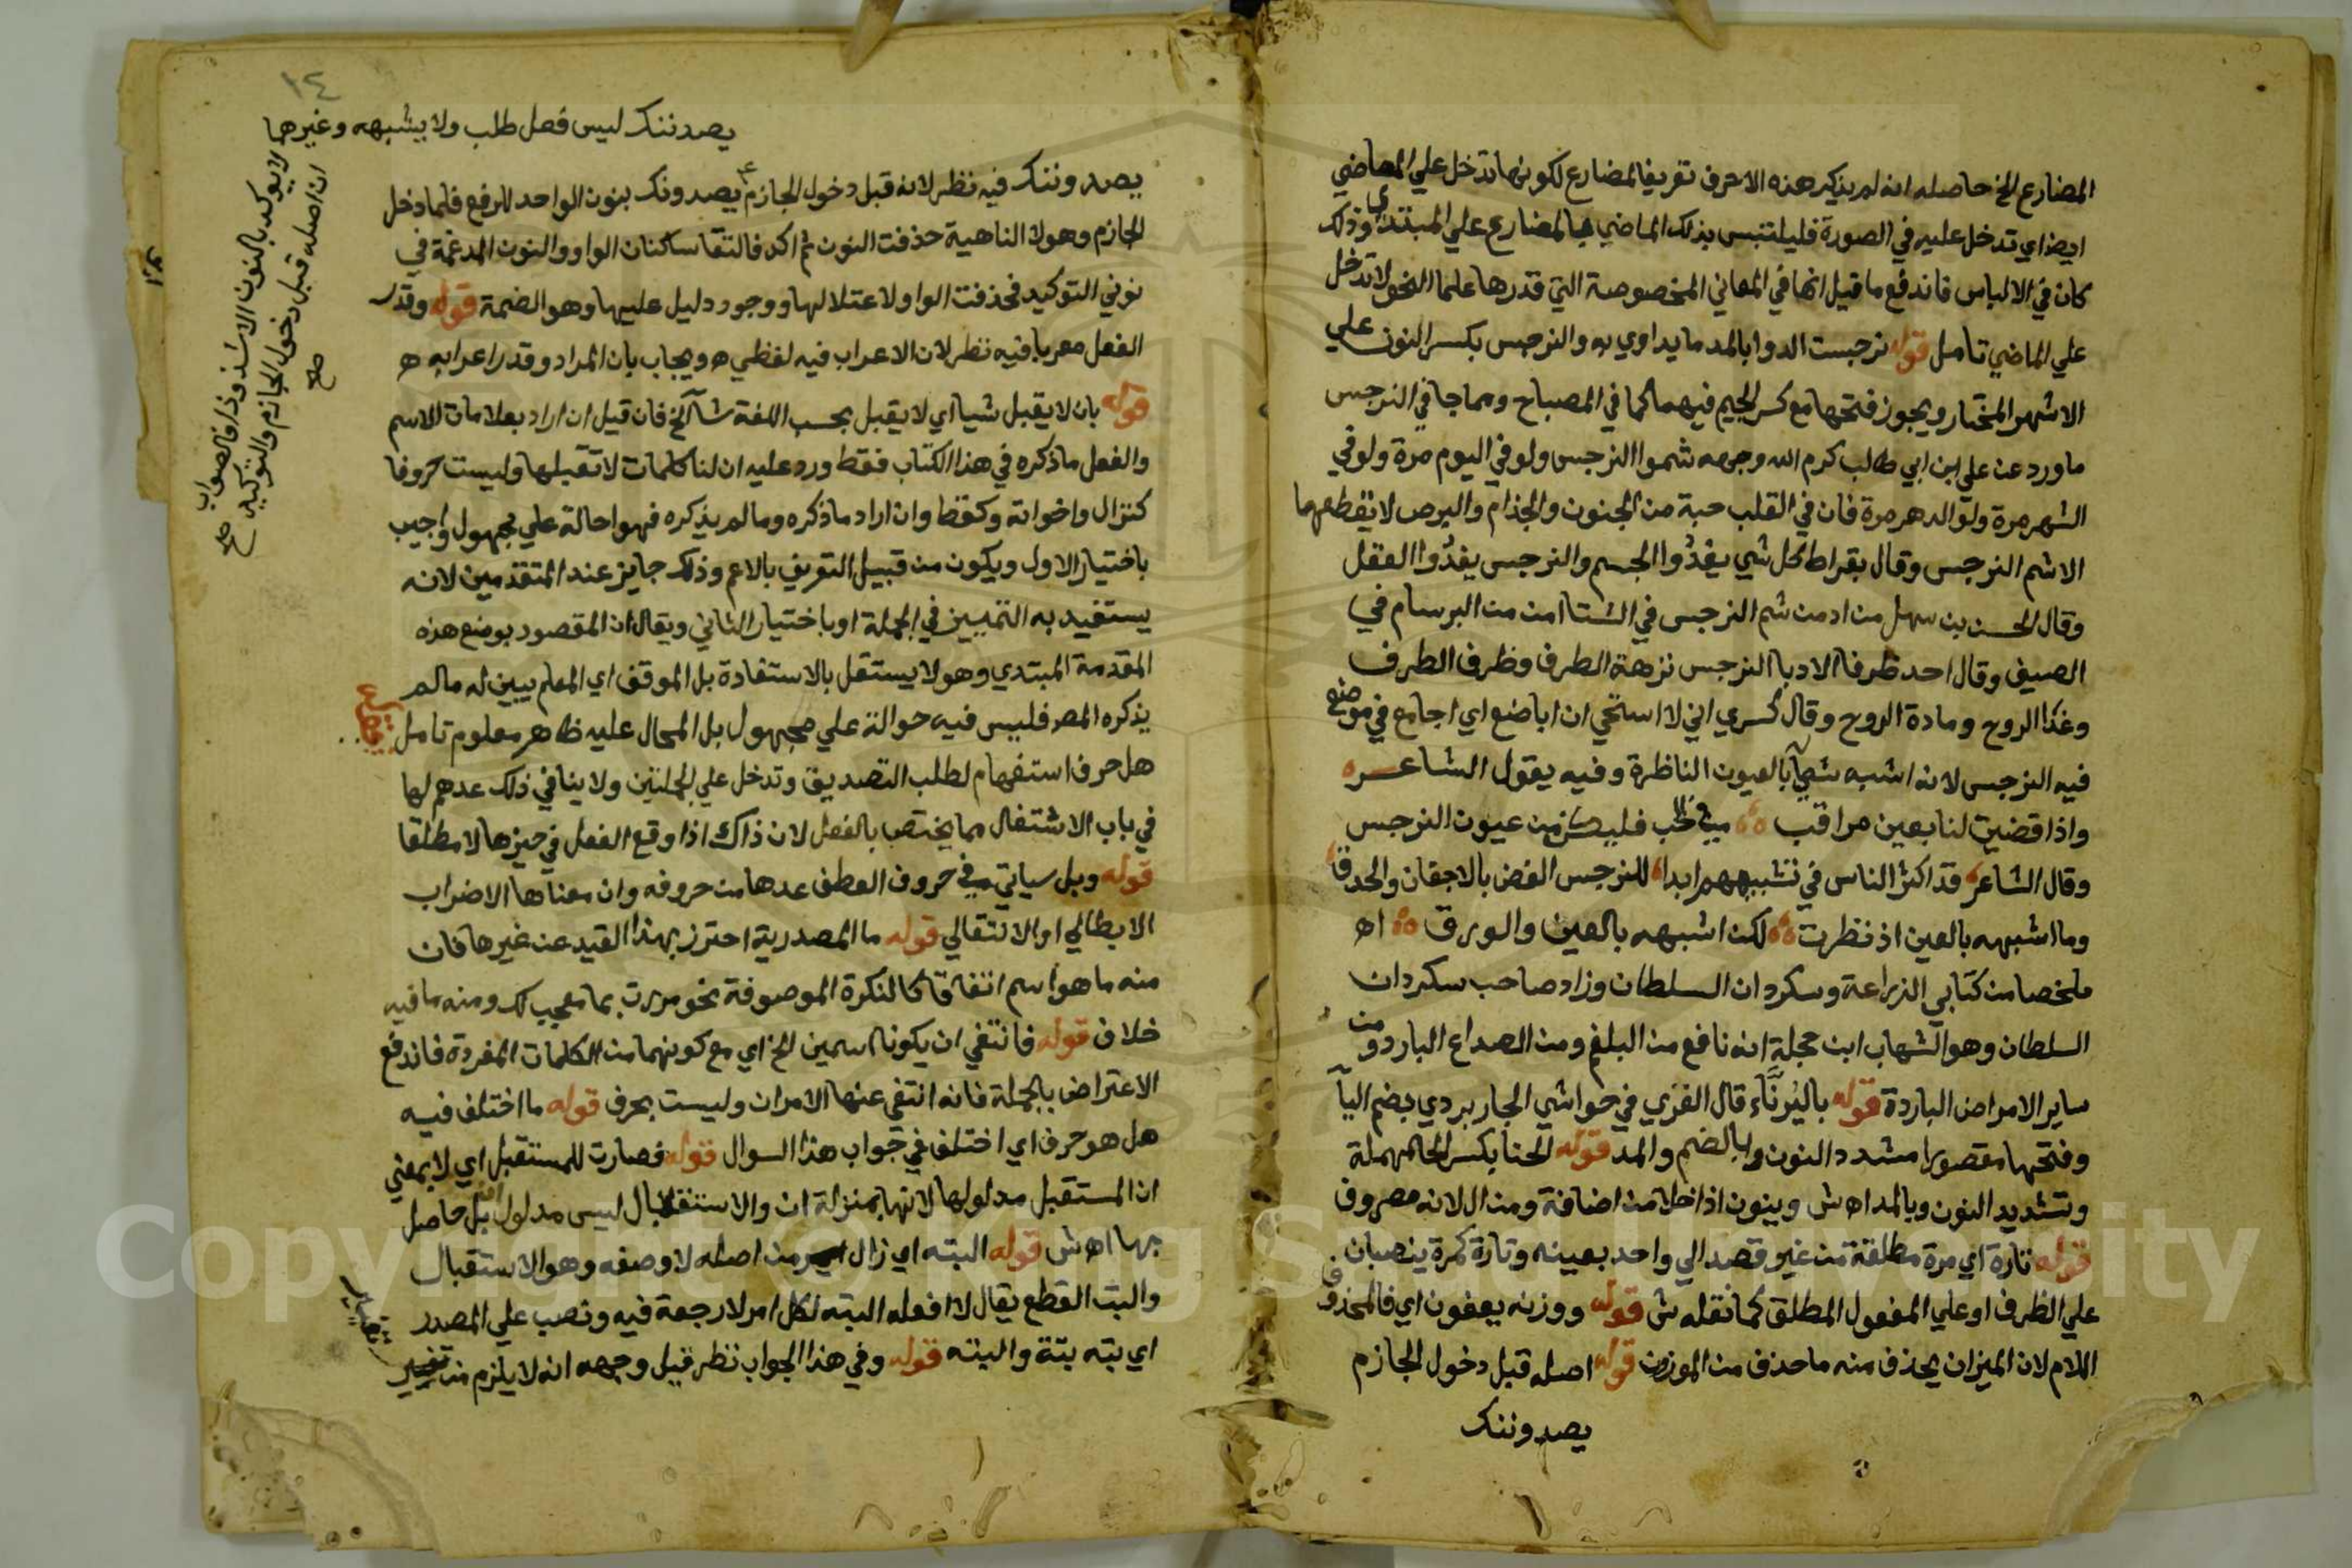 المضارع الخ حاصله انه لم يذكر هذه الاحرف تعريفا للمضارع لكونها تدخل علي الماضي
ايضا اي تدخل عليه في الصورة فليلتبس بذلك الماضي بالمضارع علي المبتدي وذلك
كان في الالباس فاندفع ما قيل انها في المعاني المخصوصة التي قدرها علما النحو لا تدخل
علي الماضي تامل قوله نرجست الدوا بالمد ما يداوي به والنرجس بكسر النون علي
الاشهر المختار ويجوز فتحها مع كسر الجيم فيهما كما في المصباح ومما جا في النرجس
ما ورد عن علي ابن ابي طالب كرم الله وجهه شموا النرجس ولو في اليوم مرة ولو في
الشهر مرة ولو الدهر مرة فان في القلب حبة من الجنون والجذام والبرص لا يقطعها
الا شم النرجس وقال بقراط كل شي يغذوا الجسم والنرجس يغذوا العقل
وقال الحسن بن سهل من ادمن شم النرجس في الشتا امن من البرسام في
الصيف وقال احد ظرفا الادبا النرجس نزهة الطرف وظرف الطرف
وغذا الروح ومادة الروح وقال كسري اني لا استحي ان اباضع اي اجامع في موضع
فيه النرجس لانه اشبه شي بالعيون الناظرة وفيه يقول الشاعر
واذا قضيت لنا بعين مراقب في الحب فليكن من عيون النرجس
وقال الشاعر قد اكثر الناس في تشبيههم ابدا للنرجس الغض بالاجفان والحدق
وما اشبهه بالعين اذ نظرت لكن اشبهه بالعين والورق اه
ملخصا من كتابي الزراعة وسكردان السلطان وزاد صاحب سكردان
السلطان وهو الشهاب ابن حجلة انه نافع من البلغم ومن الصداع البارد ومن
ساير الامراض الباردة قوله باليرناء قال الغزي في حواشي الجاربردي بضم اليا
وفتحها مقصورا مشدد النون وبالضم والمد قوله الحنا بكسر الحا المهملة
وتشديد النون وبالمد اه ش وينون اذا خلا من اضافة ومن ال لانه مصروف
قوله تارة اي مرة مطلقة من غير قصد الي واحد بعينه وتارة كمرة ينصبان
علي الظرف او علي المفعول المطلق كما نقله ش قوله ووزنه يعفون اي فالمحذوف
اللام لان الميزان يحذف منه ما حذف من الموزون قوله اصله قبل دخول الجازم
يصدوننك
١٤
يصدننك ليس فعل طلب ولا يشبهه وغيرها
لا يوكد بالنون الا شذوذا فالصواب
ان اصله قبل دخول الجازم والتوكيد
صح
يصدوننك فيه نظر لانه قبل دخول الجازم يصدونك بنون الواحد للرفع فلما دخل
الجازم وهو لا الناهية حذفت النون ثم اكد فالتقا ساكنان الواو والنون المدغمة في
نوني التوكيد فحذفت الواو لاعتلالها ووجود دليل عليها وهو الضمة قوله وقدر
الفعل معربا فيه نظر لان الاعراب فيه لفظي ويجاب بان المراد وقدر اعرابه
قوله بان لا يقبل شيا اي لا يقبل بحسب اللغة شا الخ فان قيل ان اراد بعلامات الاسم
والفعل ما ذكره في هذا الكتاب فقط ورد عليه ان لنا كلمات لا تقبلها وليست حروفا
كنزال واخواته وكقط وان اراد ما ذكره وما لم يذكره فهو احالة علي مجهول واجيب
باختيار الاول ويكون من قبيل التعريف بالاعم وذلك جايز عند المتقدمين لانه
يستفيد به التمييز في الجملة او باختيار الثاني ويقال ان المقصود بوضع هذه
المقدمة المبتدي وهو لا يستقل بالاستفادة بل الموقف اي المعلم يبين له ما لم
يذكره المصر فليس فيه حوالة علي مجهول بل المحال عليه ظاهر معلوم تامل
هل حرف استفهام لطلب التصديق وتدخل علي الجملتين ولا ينافي ذلك عدهم لها
في باب الاشتغال مما يختص بالفعل لان ذاك اذا وقع الفعل في حيزها لا مطلقا
قوله وبل سياتي في حروف العطف عدها من حروفه وان معناها الاضراب
الابطالي او الانتقالي قوله ما المصدرية احترز بهذا القيد عن غيرها فان
منه ما هو اسم اتفاقا كالنكرة الموصوفة نحو مررت بما معجب لك ومنه ما فيه
خلاف قوله فانتفي ان يكونا اسمين الخ اي مع كونهما من الكلمات المفردة فاندفع
الاعتراض بالجملة فانه انتفي عنها الامران وليست بحرف قوله ما اختلف فيه
هل هو حرف اي اختلف في جواب هذا السوال قوله فصارت للمستقبل اي لا بمعني
ان المستقبل مدلولها لانها بمنزلة ان والاستقبال ليس مدلول ان بل حاصل
بها اه ش قوله البته اي زال من اصله لا وصفه وهو الاستقبال
والبت القطع يقال لا افعله البته لكل امر لا رجعة فيه ونصب علي المصدر
اي بته بتة والبته قوله وفي هذا الجواب نظر قيل وجهه انه لا يلزم من تغيير
Copyright © King Saud University